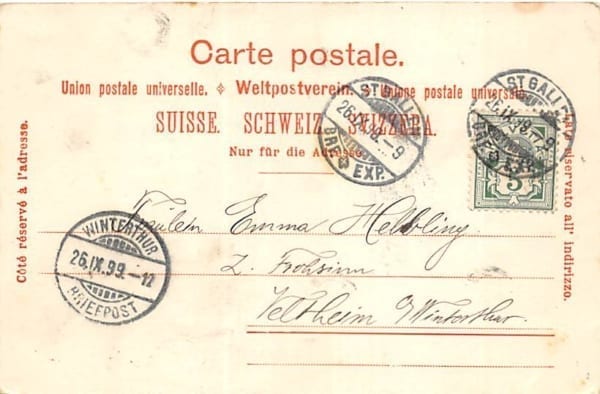 Carte postale.
Union postale universelle. ⬥ Weltpostverein. ⬥ Unione postale universale
SUISSE. SCHWEIZ. SVIZZERA.
Nur für die Adresse.
Côté réservé à l'adresse.
Lato riservato all' indirizzo.
ST. GALLEN
26.IX.99.-9
BRF. EXP.
ST. GALLEN
26.IX.99.-9
BRF. EXP.
5
WINTERTHUR
26.IX.99.-12
BRIEFPOST
Fräulein Emma Helbling.
z. Frohsinn
Veltheim b/Winterthur.